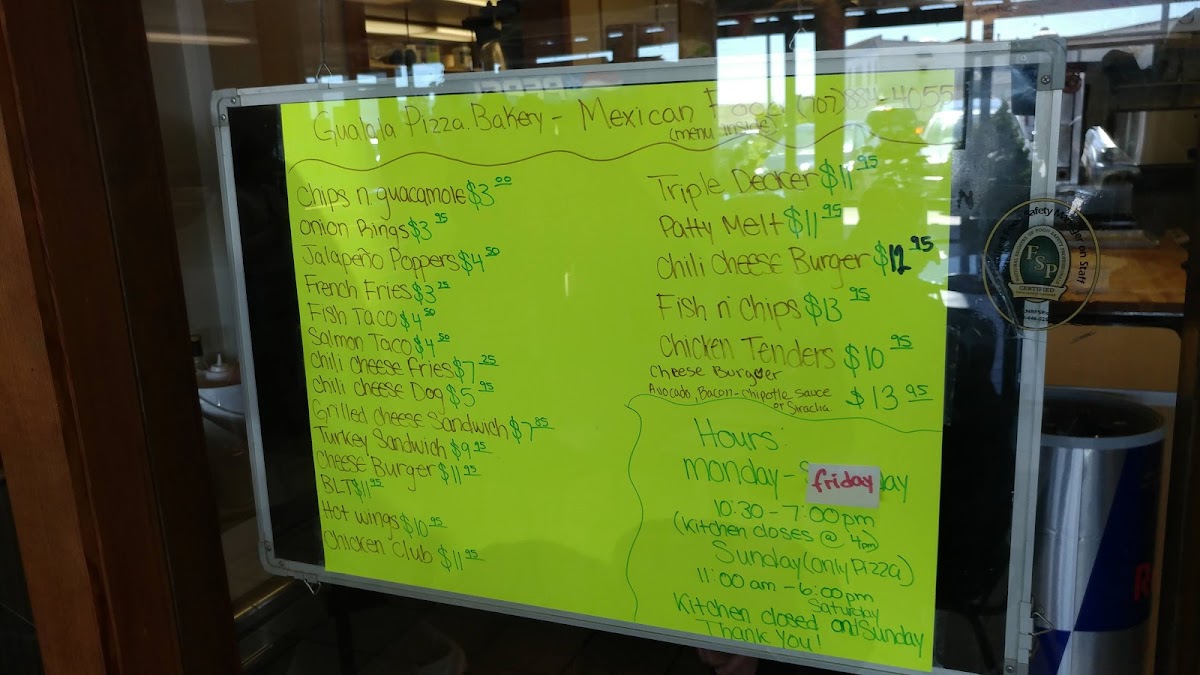 Gualala Pizza. Bakery - Mexican Food (707) 884-4055
(menu inside)
Chips n guacamole $3.00
Onion Rings $3.95
Jalapeño Poppers $4.50
French Fries $3.25
Fish Taco $4.50
Salmon Taco $4.50
Chili Cheese Fries $7.25
Chili Cheese Dog $5.95
Grilled Cheese Sandwich $7.85
Turkey Sandwich $9.95
Cheese Burger $11.95
BLT $11.95
Hot wings $10.95
Chicken Club $11.95
Triple Decker $11.95
Patty Melt $11.95
Chili Cheese Burger $12.95
Fish n' Chips $13.95
Chicken Tenders $10.95
Cheese Burger
Avocado, Bacon-chipotle sauce
or Siracha $13.95
Hours:
monday - friday
10:30 - 7:00pm
(Kitchen closes @ 4pm)
Sunday (only Pizza)
11:00 am - 6:00pm
Saturday
Kitchen closed and Sunday
Thank You!
Safety Manager on Staff
FSP
CERTIFIED